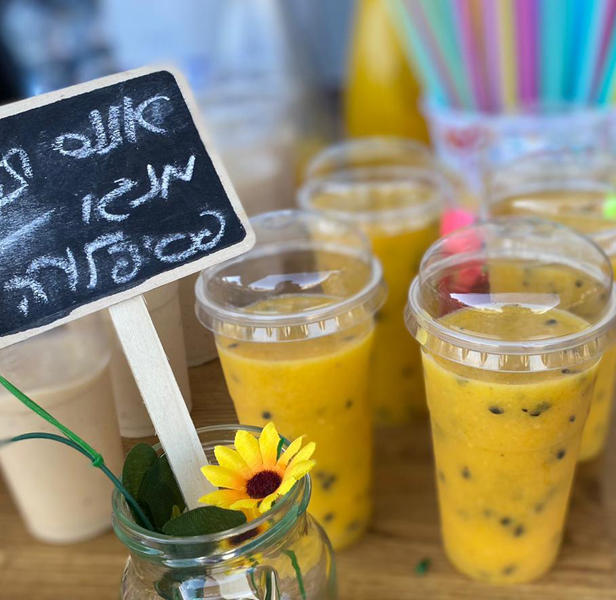 אננס
מנגו
פסיפלורה